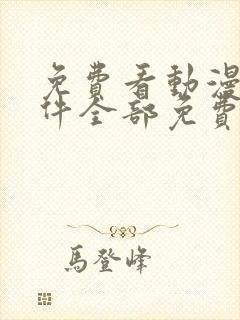 免費看動漫
件全部免費
馬登峰